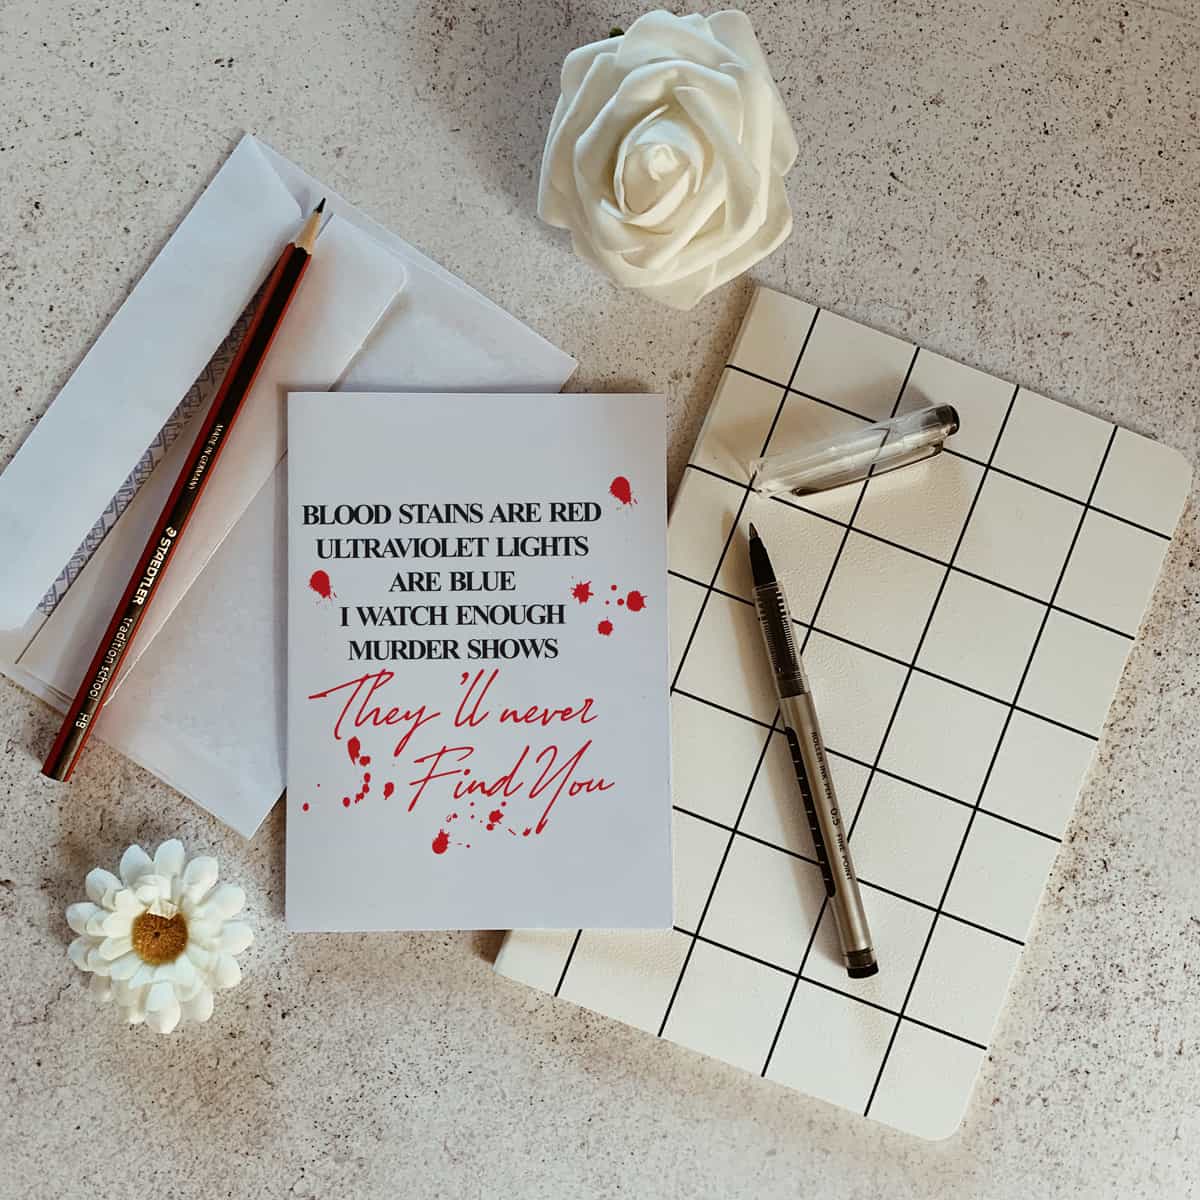 BLOOD STAINS ARE RED
ULTRAVIOLET LIGHTS
ARE BLUE
I WATCH ENOUGH
MURDER SHOWS
They'll never
Find You
MADE IN GERMANY
STAEDTLER tradition school HB
ROLLER INK PEN 0.5 FINE POINT